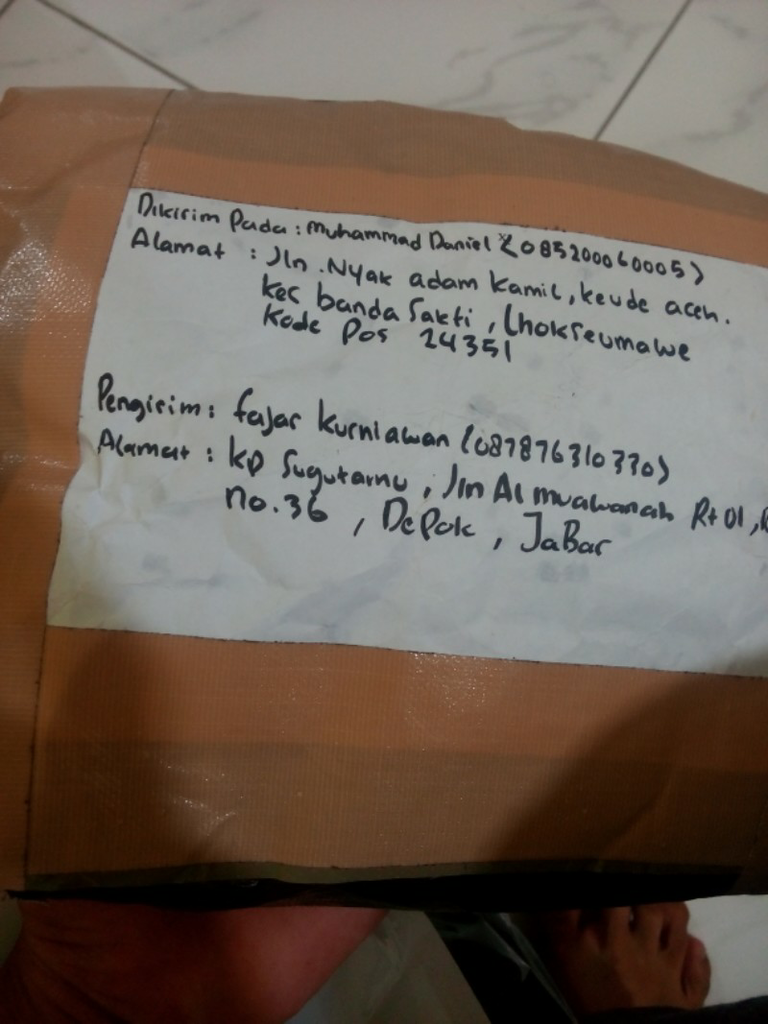 Dikirim Pada : Muhammad Daniel (085200060005)
Alamat : Jln. Nyak adam Kamil, keude aceh.
kec banda Sakti, Lhokseumawe
Kode Pos 24351
Pengirim : fajar kurniawan (087876310330)
Alamat : kp Sugutamu, Jln Al muawanah Rt 01,
no. 36, Depok, JaBar